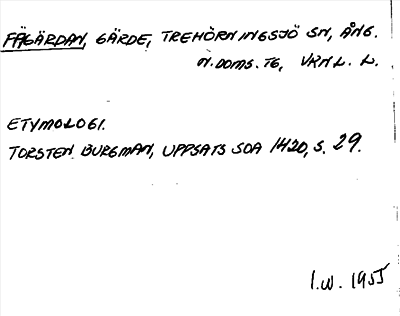 FÄGÄRDAN, GÄRDE, TREHÖRNINGSJÖ SN, ÅNG.
N. DOMS. TG, VRNL. L.
ETYMOLOGI.
TORSTEN BURGMAN, UPPSATS SOA 1420, S. 29.
I.W. 1955